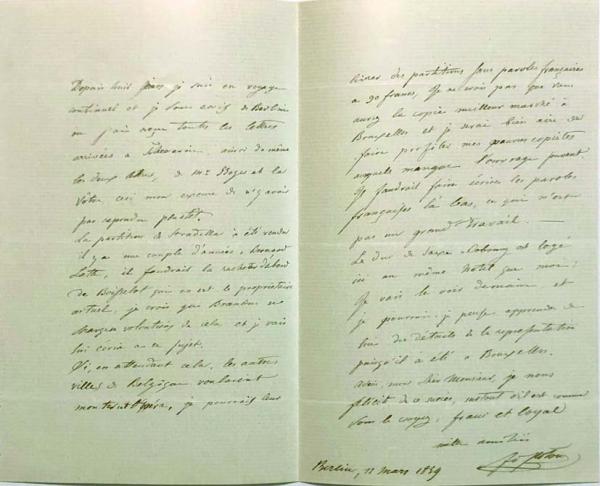 Depuis huit jours je suis en voyage
continuel et je vous écris de Berlin
où j'ai reçu toutes les lettres
arrivées à Schwerin, ainsi de même
les deux de Mr et la
vôtre ceci mon excuse de n'y avoir
pas répondu plustôt.
La partition de Stradella a été vendue
il y a une couple d'années à
il faudrait la racheter d'abord
de Boisselot qui en est le propriétaire
actuel, je crois que Brandus se
chargera volontiers de cela et je vais
lui écrire à ce sujet.
Si, en attendant cela, les autres
villes de Belgique voulaient
monter l'opéra, je pourrais leur
des partitions sans paroles françaises
à 90 francs, je ne crois pas que vous
aurez la copie meilleur marché à
Bruxelles et je serai bien aise de
faire profiter mes pauvres copistes
auquels manque l'ouvrage
Il faudrait faire écrire les paroles
françaises là bas, ce qui n'est
pas un grand travail.
Le Duc de Saxe Cobourg est logé
ici au même hôtel que moi;
Je vais le voir demain et
je pourrai, je pense apprendre de
lui des détails de la représentation
puisqu'il a été à Bruxelles.
Adieu, mon cher Monsieur, je vous
félicite de ce succès,
vous le croyez, franc et loyal
mille amitiés
Berlin, 11 mars 1859